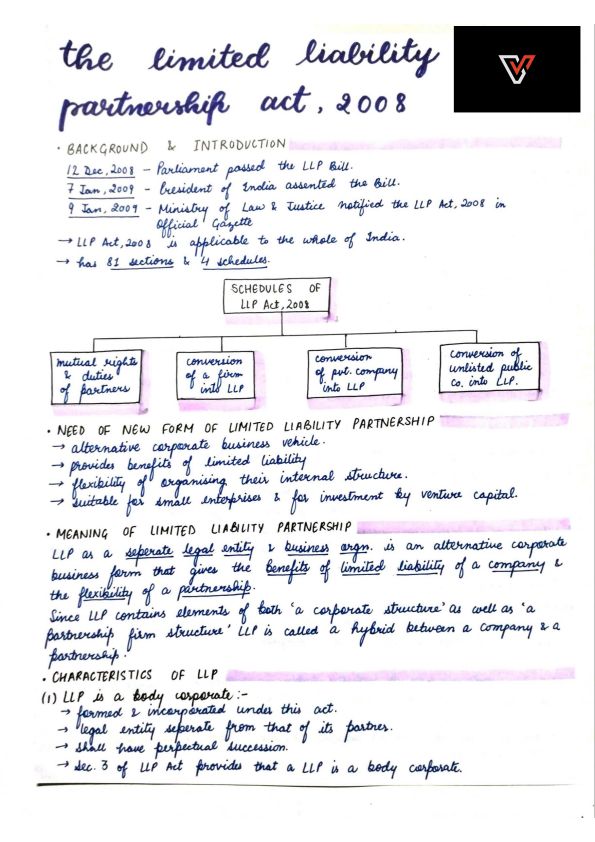 the limited liability
partnership act, 2008
• BACKGROUND & INTRODUCTION
12 Dec, 2008 – Parliament passed the LLP Bill.
7 Jan, 2009 – President of India assented the Bill.
9 Jan, 2009 – Ministry of Law & Justice notified the LLP Act, 2008 in
Official Gazette
→ LLP Act, 2008 is applicable to the whole of India.
→ has 81 sections & 4 schedules.
SCHEDULES OF
LLP Act, 2008
mutual rights
& duties
of partners
conversion
of a firm
into LLP
conversion
of pvt. company
into LLP
conversion of
unlisted public
co. into LLP.
• NEED OF NEW FORM OF LIMITED LIABILITY PARTNERSHIP
→ alternative corporate business vehicle.
→ provides benefits of limited liability
→ flexibility of organising their internal structure.
→ suitable for small enterprises & for investment by venture capital.
• MEANING OF LIMITED LIABILITY PARTNERSHIP
LLP as a seperate legal entity & business orgn. is an alternative corporate
business form that gives the benefits of limited liability of a company &
the flexibility of a partnership.
Since LLP contains elements of both 'a corporate structure' as well as 'a
partnership firm structure' LLP is called a hybrid between a company & a
partnership.
• CHARACTERISTICS OF LLP
(1) LLP is a body corporate :-
→ formed & incorporated under this act.
→ legal entity seperate from that of its partner.
→ shall have perpetual succession.
→ Sec. 3 of LLP Act provides that a LLP is a body corporate.